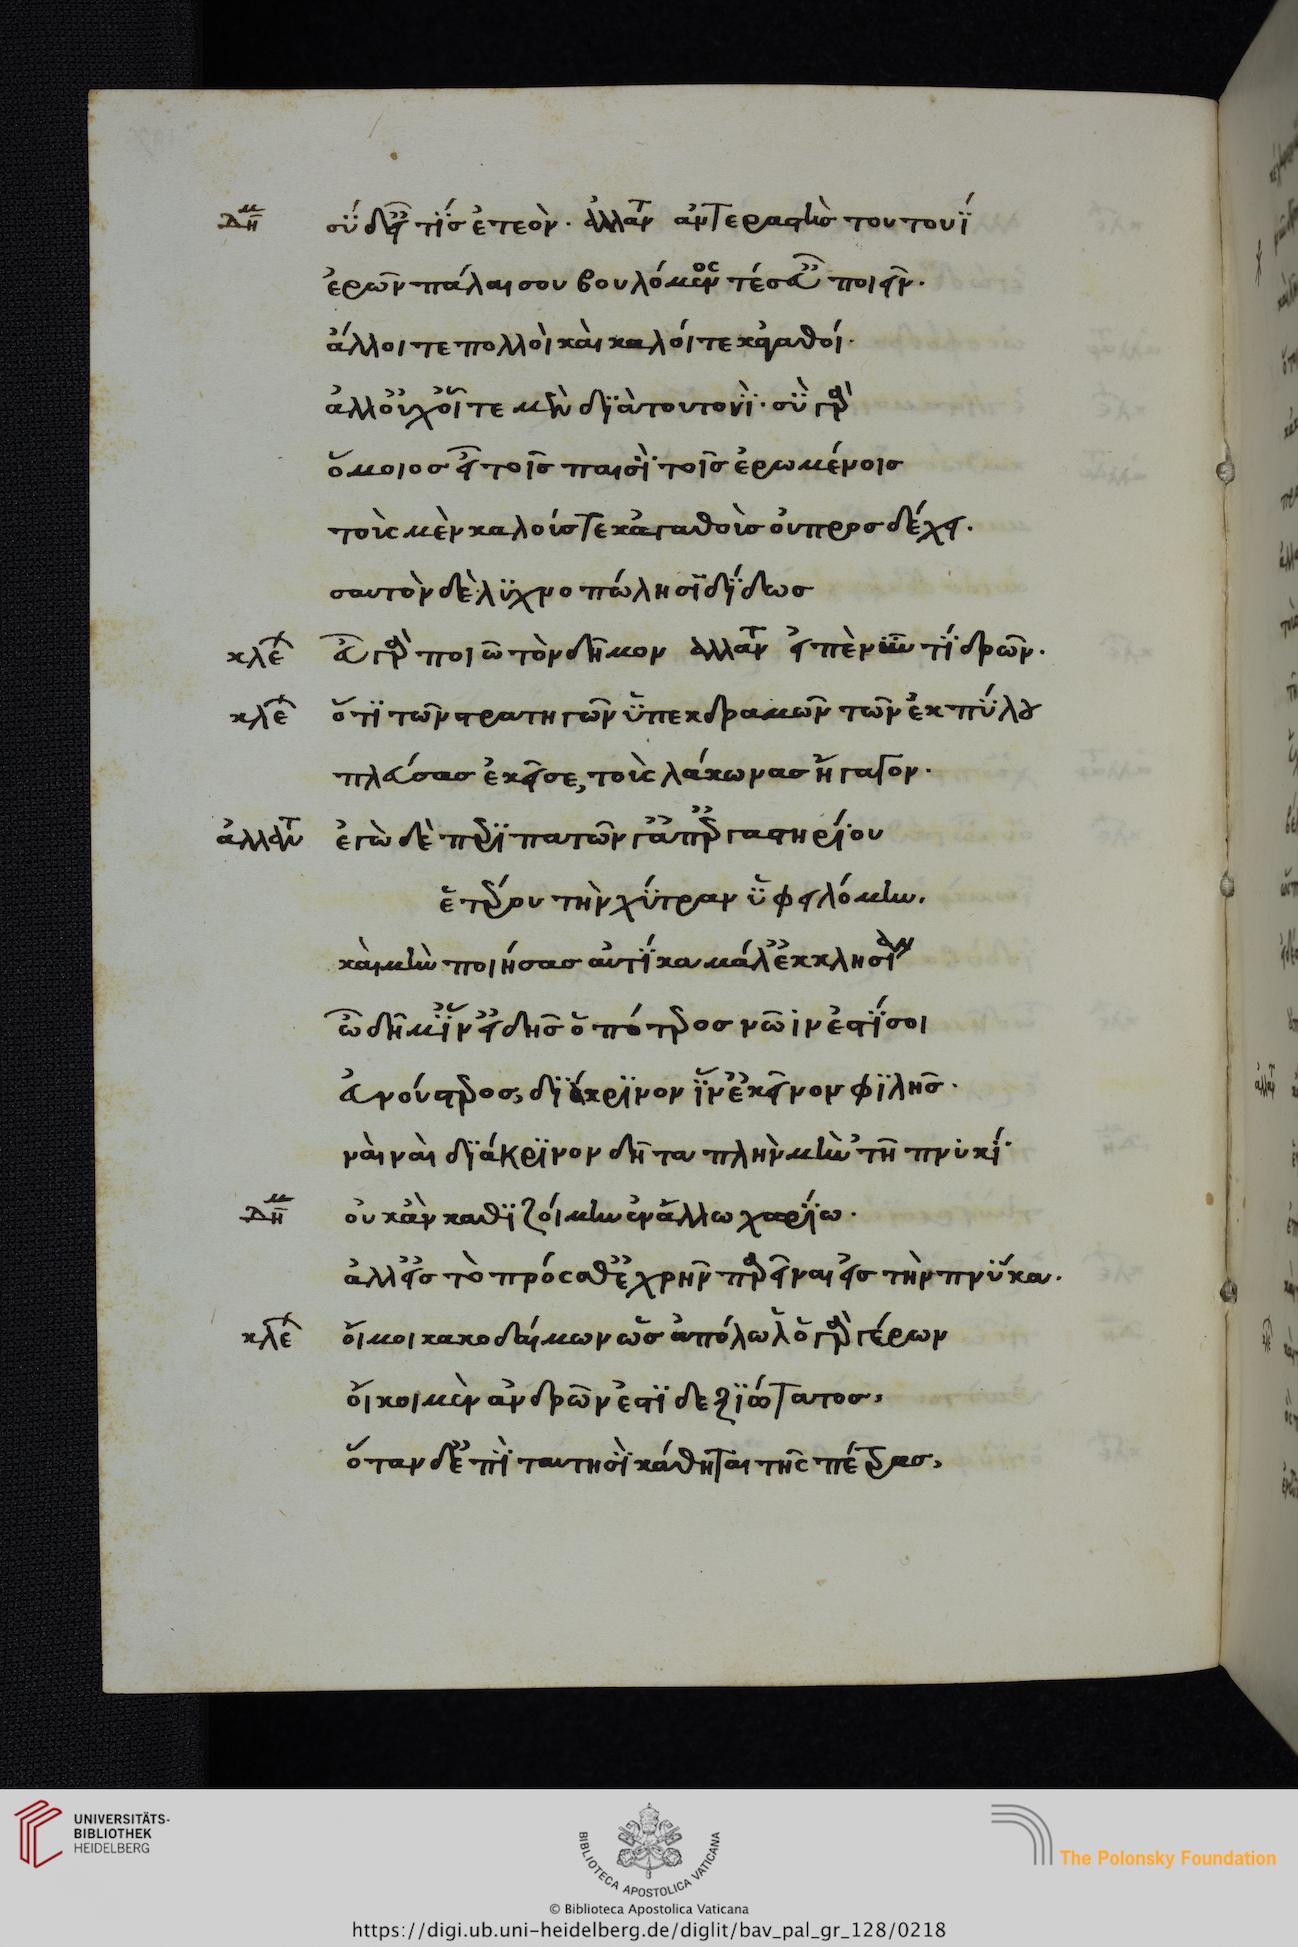 Δημ σὺ δ' εἶ τίς ἐτεόν. ἀλλαντ ἀντεραστὴς τουτουί
ἐρῶν πάλαι σου βουλόμενός τέ σ' εὖ ποιεῖν.
ἄλλοι τε πολλοὶ καὶ καλοί τε κἀγαθοί.
ἀλλ' οὐχ οἷοί τε μὴν διὰ τουτονί. σὺ γὰρ
ὅμοιος εἶ τοῖς παισὶ τοῖς ἐρωμένοις
τοὺς μὲν καλούς τε κἀγαθοὺς οὐ προσδέχει.
σαυτὸν δὲ λυχνοπώλησι δίδως
κλέ εὖ γὰρ ποιῶ τὸν δῆμον ἀλλαντ εἰπὲ νῦν τί δρῶν.
κλέ ὅτι τῶν στρατηγῶν ὑπεκδραμὼν τῶν ἐκ πύλου
πλεύσας ἐκεῖσε, τοὺς λάκωνας ἤγαγον.
ἀλλαντ ἐγὼ δὲ περιπατῶν γ' ἀπ' ἐργαστηρίου
ἑτέρου τὴν χύτραν ὑφειλόμην.
καὶ μὴν ποιήσας αὐτίκα μάλ' ἐκκλησίαν
ὦ δῆμ' ἵν' εἰδῇς ὁπότερος νῶιν ἐστί σοι
εὐνούστερος, διάκρινον ἵν' ἐκεῖνον φιλῇς.
ναὶ ναὶ διάκρινον δῆτα πλὴν μὴ 'ν τῇ πνυκί
Δημ οὐκ ἂν καθιζοίμην ἐν ἄλλω χωρίω.
ἀλλ' εἰς τὸ πρόσθ' ἐχρῆν παρεῖναι εἰς τὴν πνύκα.
κλέ οἴμοι κακοδαίμων ὡς ἀπόλωλ' ὁ γὰρ γέρων
οἴκοι μὲν ἀνδρῶν ἐστι δεξιώτατος,
ὅταν δ' ἐπὶ ταυτησὶ κάθηται τῆς πέτρας,
UNIVERSITÄTS-
BIBLIOTHEK
HEIDELBERG
BIBLIOTECA APOSTOLICA VATICANA
The Polonsky Foundation
© Biblioteca Apostolica Vaticana
https://digi.ub.uni-heidelberg.de/diglit/bav_pal_gr_128/0218